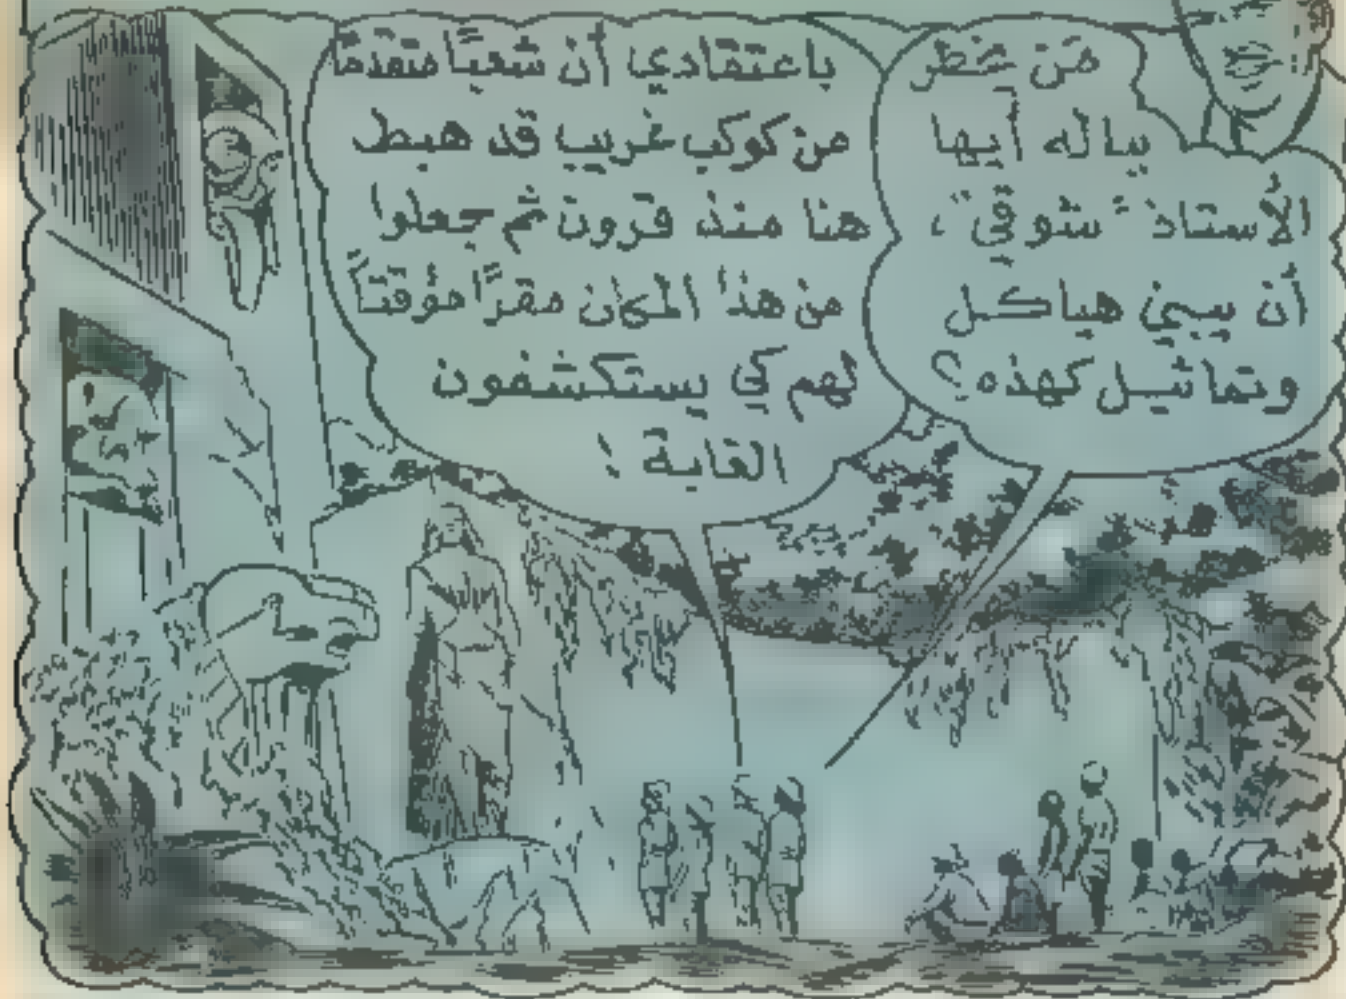 مَن خطر
بباله أيها
الأستاذ "شوقي"،
أن يبني هياكل
وتماثيل كهذه؟
باعتقادي أن شعبًا متقدمًا
من كوكب غريب قد هبط
هنا منذ قرون ثم جعلوا
من هذا المكان مقرًا مؤقتًا
لهم كي يستكشفون
الغابة !